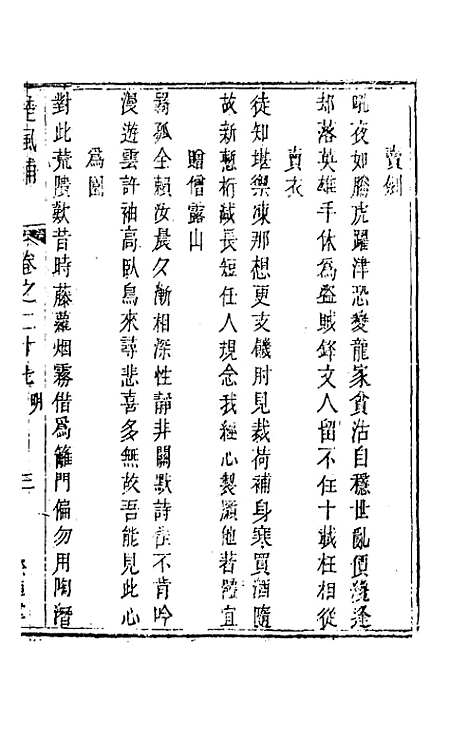 賣劍
吼夜如騰虎躍津恐變龍家貧沽自穩世亂價淺逢
却落英雄手休為盜賊鋒文人留不住十載枉相從
賣衣
徒知堪禦凍那想更支饑肘見裁荷補身寒買酒隨
故新慙桁緘長短任人規念我經心製願他着體宜
贈僧露山
羇孤全賴汝晨夕漸相深性靜非關默詩不肯吟
漫遊雲許袖高臥鳥來尋悲喜多無故吾能見此心
為園
對此荒隤歎昔時藤蘿烟霧借為籬門偏勿用陶潛
風補 卷之二十七 明 三